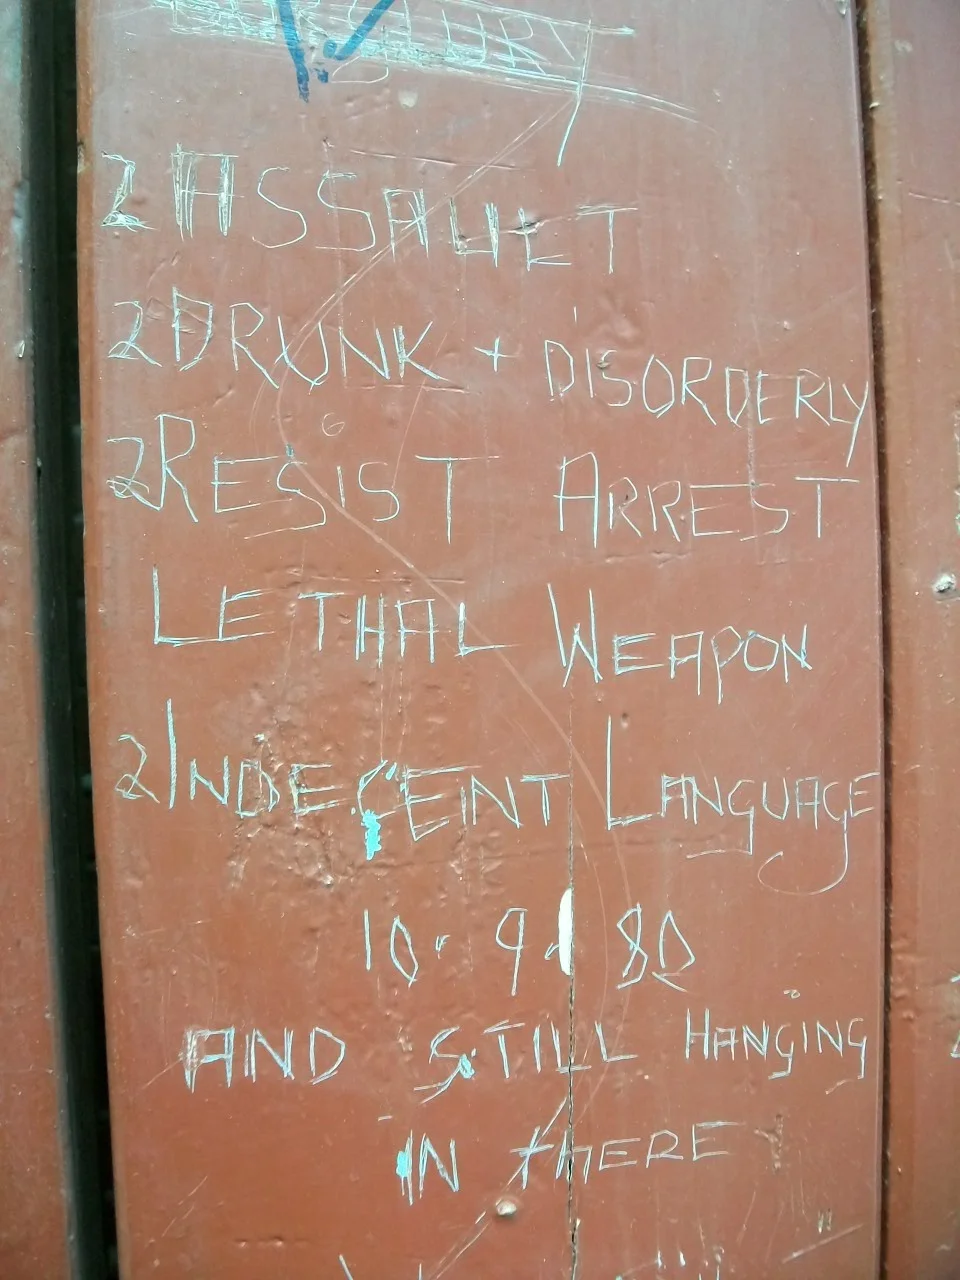 2 ASSAULT
2 DRUNK + DISORDERLY
2 RESIST ARREST
LETHAL WEAPON
2 INDECENT LANGUAGE
10. 9. 80
AND STILL HANGING
IN THERE